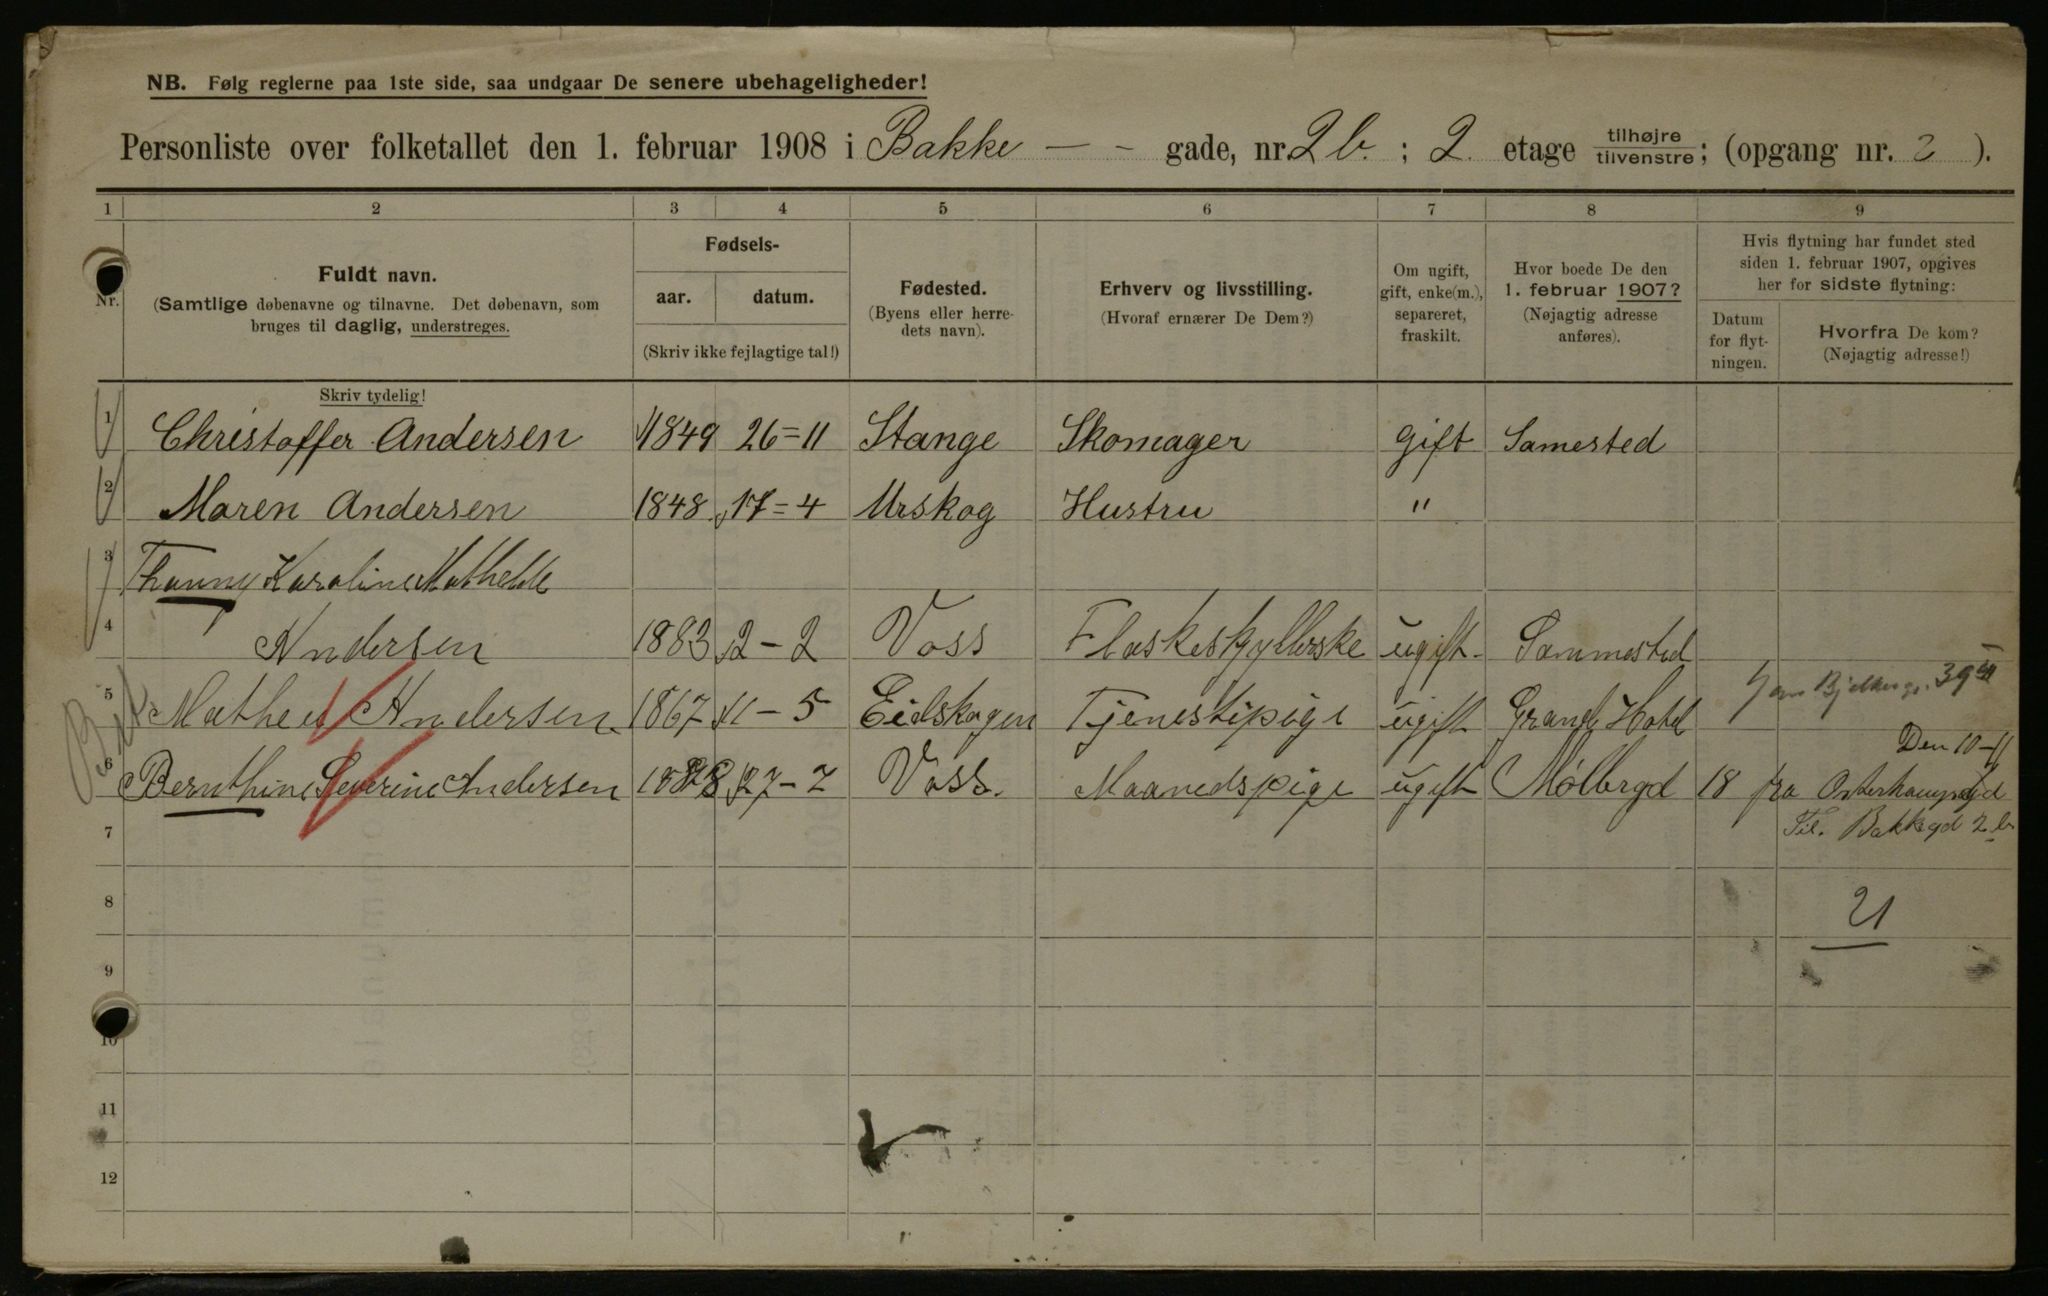 NB. Følg reglerne paa 1ste side, saa undgaar De senere ubehageligheder!
Personliste over folketallet den 1. februar 1908 i Bakke - - gade, nr. 2 b. ; 2. etage tilhøjre tilvenstre; (opgang nr. 2 ).
1 2 3 4 5 6 7 8 9
Nr.
Fuldt navn.
(Samtlige døbenavne og tilnavne. Det døbenavn, som
bruges til daglig, understreges.
Skriv tydelig!
Fødsels-
aar. datum.
(Skriv ikke fejlagtige tal!)
Fødested.
(Byens eller herre-
dets navn).
Erhverv og livsstilling.
(Hvoraf ernærer De Dem?)
Om ugift,
gift, enke(m.),
separeret,
fraskilt.
Hvor boede De den
1. februar 1907?
(Nøjagtig adresse
anføres).
Hvis flytning har fundet sted
siden 1. februar 1907, opgives
her for sidste flytning:
Datum
for flyt-
ningen.
Hvorfra De kom?
(Nøjagtig adresse!)
1 Christoffer Andersen 1849 26=11 Stange Skomager Gift Samested
2 Maren Andersen 1848 17=4 Urskog Hustru "
3 Thanny Karoline Mathelde
4 Andersen 1883 2-2 Voss Flaskeskyllerske ugift Sammested
5 Andersen 1867 11-5 Eidskogen Tjenestipige ugift Grand Hotel
Den 10-11
6 Bernthine Severine Andersen 27-2 Voss. Maanedspige ugift Mølbergd 18 fra
7 Til. Bakkegd 2 b
8 21
9
10
11
12